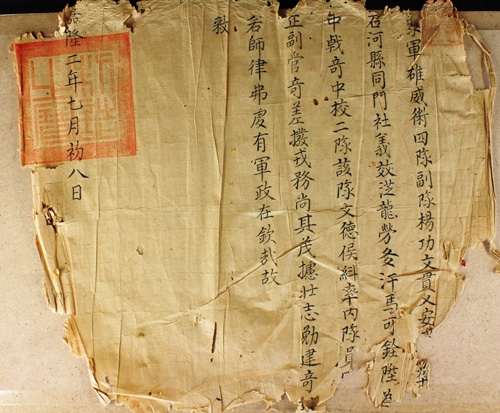 軍雄威衛四隊副隊楊功文貫乂安
石河縣同門社義效從龍勞多汗馬可銓陞為
中戟奇中校二隊該隊文德侯糾率內隊員
正副當奇差撥戎務尚其茂攄壯志勉建奇
若師律弗虔有軍政在欽哉故
敕
嘉隆二年七月初八日